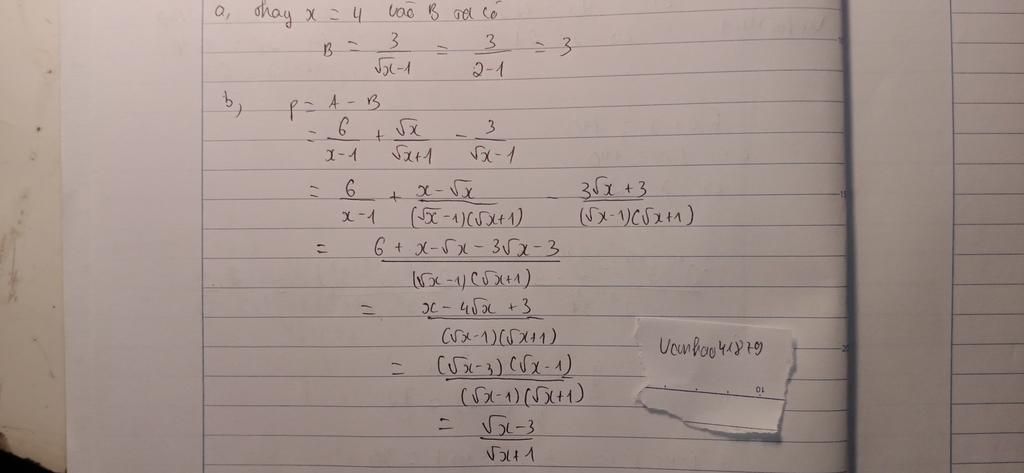 a, thay x = 4 vào B ta có
B = 3/(√x-1) = 3/(2-1) = 3
b, P = A - B
= 6/(x-1) + √x/(√x+1) - 3/(√x-1)
= 6/(x-1) + (x-√x)/((√x-1)(√x+1)) - (3√x+3)/((√x-1)(√x+1))
= (6+x-√x-3√x-3)/((√x-1)(√x+1))
= (x-4√x+3)/((√x-1)(√x+1))
= ((√x-3)(√x-1))/((√x-1)(√x+1))
= (√x-3)/(√x+1)
Vanhao41879
10
15
20